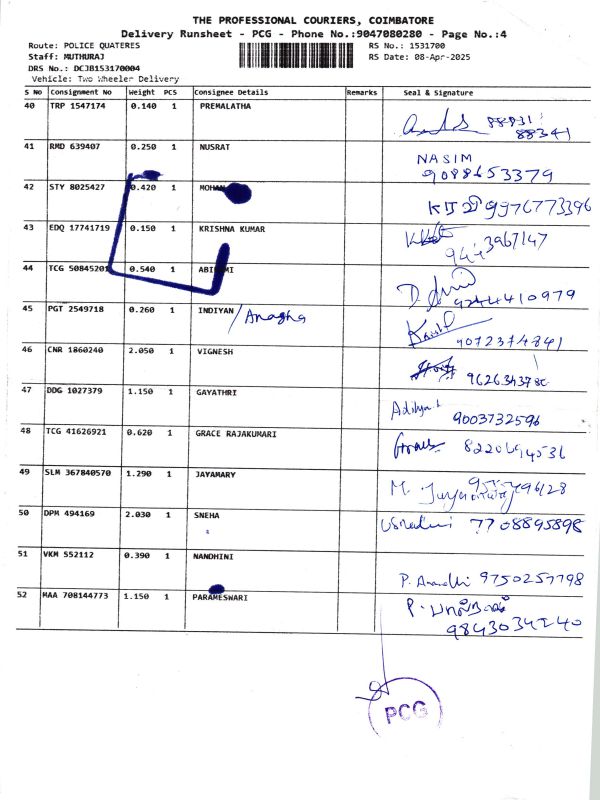 THE PROFESSIONAL COURIERS, COIMBATORE
Delivery Runsheet - PCG - Phone No.:9047080280 - Page No.:4
Route: POLICE QUATERES RS No.: 1531700
Staff: MUTHURAJ RS Date: 08-Apr-2025
DRS No.: DCJB153170004
Vehicle: Two Wheeler Delivery
S No Consignment No Weight PCS Consignee Details Remarks Seal & Signature
40 TRP 1547174 0.140 1 PREMALATHA
88341
41 RMD 639407 0.250 1 NUSRAT NASIM
9088653379
42 STY 8025427 0.420 1 9976773396
43 EDQ 17741719 0.150 1 KRISHNA KUMAR
9443967147
44 TCG 50845201 0.540 1
9244410979
45 PGT 2549718 0.260 1 INDIYAN / Anagha
9072374841
46 CNR 1860240 2.050 1 VIGNESH
47 DDG 1027379 1.150 1 GAYATHRI
9003732596
48 TCG 41626921 0.620 1 GRACE RAJAKUMARI
49 SLM 367840570 1.290 1 JAYAMARY M.
50 DPM 494169 2.030 1 SNEHA 7708895898
51 VKM 552112 0.390 1 NANDHINI
9750257798
52 MAA 708144773 1.150 1 PARAMESWARI P.
PCG